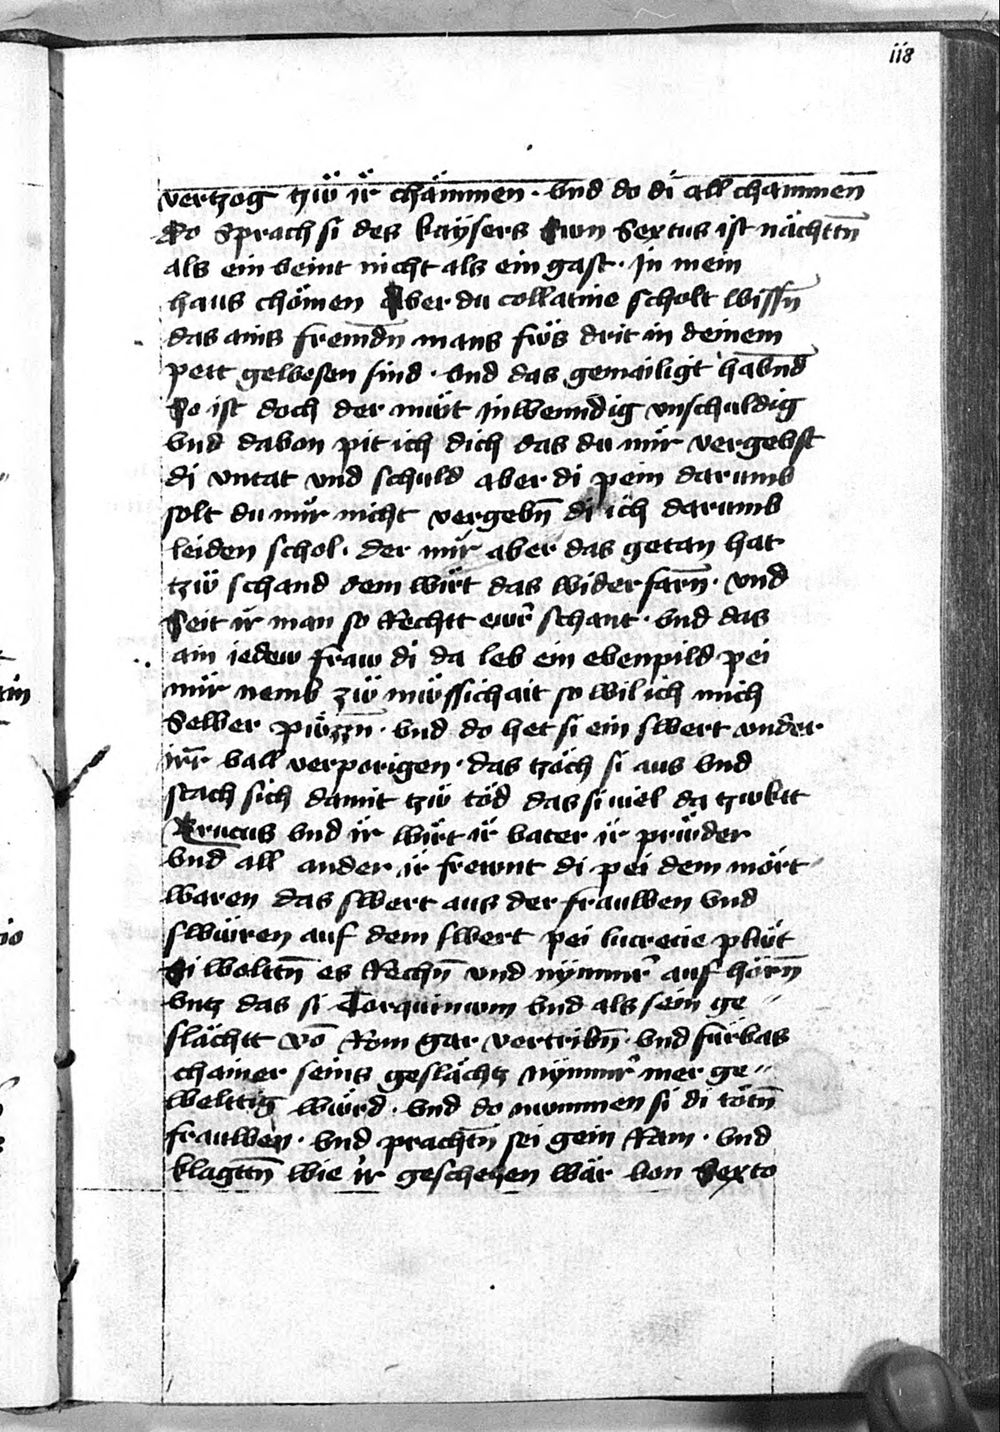 118
vertzog tzẅ ir̈ chämmen · vnd do di all chammen
Do Sprach si des kaÿsers Swn Sextus ist nächttn̄
als ein veint nicht als ein gast · In mein
haus chömen Aber du collatine scholt wissn̄
das ains fremdn̄ mans füs drit in deinem
pett gewesen sind · vnd das gemailigt habnd
So ist doch der müt inwenndig vnschuldig
vnd davon pit ich dich das du mir vergebst
di vntat vnd schuld aber di pein darumb
solt du mir nicht vergebn̄ di ich darumb
leiden schol · der mir aber das getan hat
tzẅ schand dem wirt das widerfarn̄ · vnd
Seit ir man so Rechtt ewr̄ schant · vnd das
ain iedew fraw di da leb ein ebenpild pei
mir nemb zẅ müssichait so wil ich mich
Selber püzzn̄ · vnd do het si ein swert vnder
irr̄ vall verporigen · das tzöch si aus vnd
stach sich damit tzẅ töd das si viel da tzwktt
Brutus vnd ir wirt ir vater ir prüder
vnd all ander ir frewnt di pei dem mört
waren das swert aus der frauwen vnd
swüren auf dem swert pei lucrecie plüt
Si welttn̄ es Rechn̄ vnd nÿmmr̄ auf hörn̄
vntz das si Torquinum vnd als sein ge〃
slächtt vō Rom gar vertribn̄ · vnd fürbas
chainer seins geslächtz nÿmmr̄ mer ge〃
welttig würd · vnd do nummen si di tötn̄
frauwen · vnd prachtn̄ sei gein Ram · vnd
klagttn̄ wie ir geschehen wär von Sexto